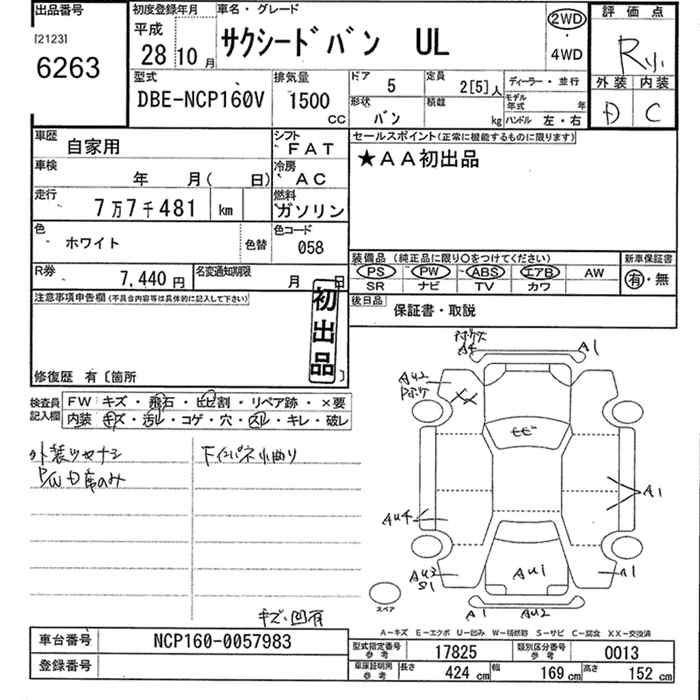 出品番号 初度登録年月 車名・グレード 評価点
[2123]
6263
平成 28年 10月 サクシードバン UL ②WD ・ 4WD R小
型式 排気量 ドア 5 定員 2[5]人 ディーラー・並行 外装 内装
DBE-NCP160V 1500 CC 形状 バン 積載 kg モデル年式 年 ハンドル 左・右 D C
車歴 自家用 シフト FAT セールスポイント(正常に機能するものに限ります)
車検 年 月( 日) 冷房 AC ★AA初出品
走行 7万7千481 km 燃料 ガソリン
色 ホワイト 色替 色コード 058
装備品 (純正品に限り○をつけてください) 新車保証書
R券 7,440円 名変通知期限 月 日 PS PW ABS エアB AW 有・無
SR ナビ TV カワ
注意事項申告欄(不具合内容等は具体的に記入して下さい) 初出品 後日品 保証書・取説
修復歴 有〔箇所
検査員記入欄 FW キズ・飛石・ヒビ割・リペア跡・×要
内装 キズ・汚レ・コゲ・穴・スレ・キレ・破レ
外装ツヤナシ Fインパネ小曲り
P/W D席のみ
A4 A1
AU2
XX
ヒビ
A1
AU4
AU3
S1
AU1
A1
スペア
A1 AU2
キズ・凹有
A-キズ E-エクボ U-凹み W-補修跡 S-サビ C-腐食 XX-交換済
車台番号 NCP160-0057983 型式指定番号 参考 17825 類別区分番号 参考 0013
登録番号 車庫証明用 参考 長さ 424 cm 幅 169 cm 高さ 152 cm